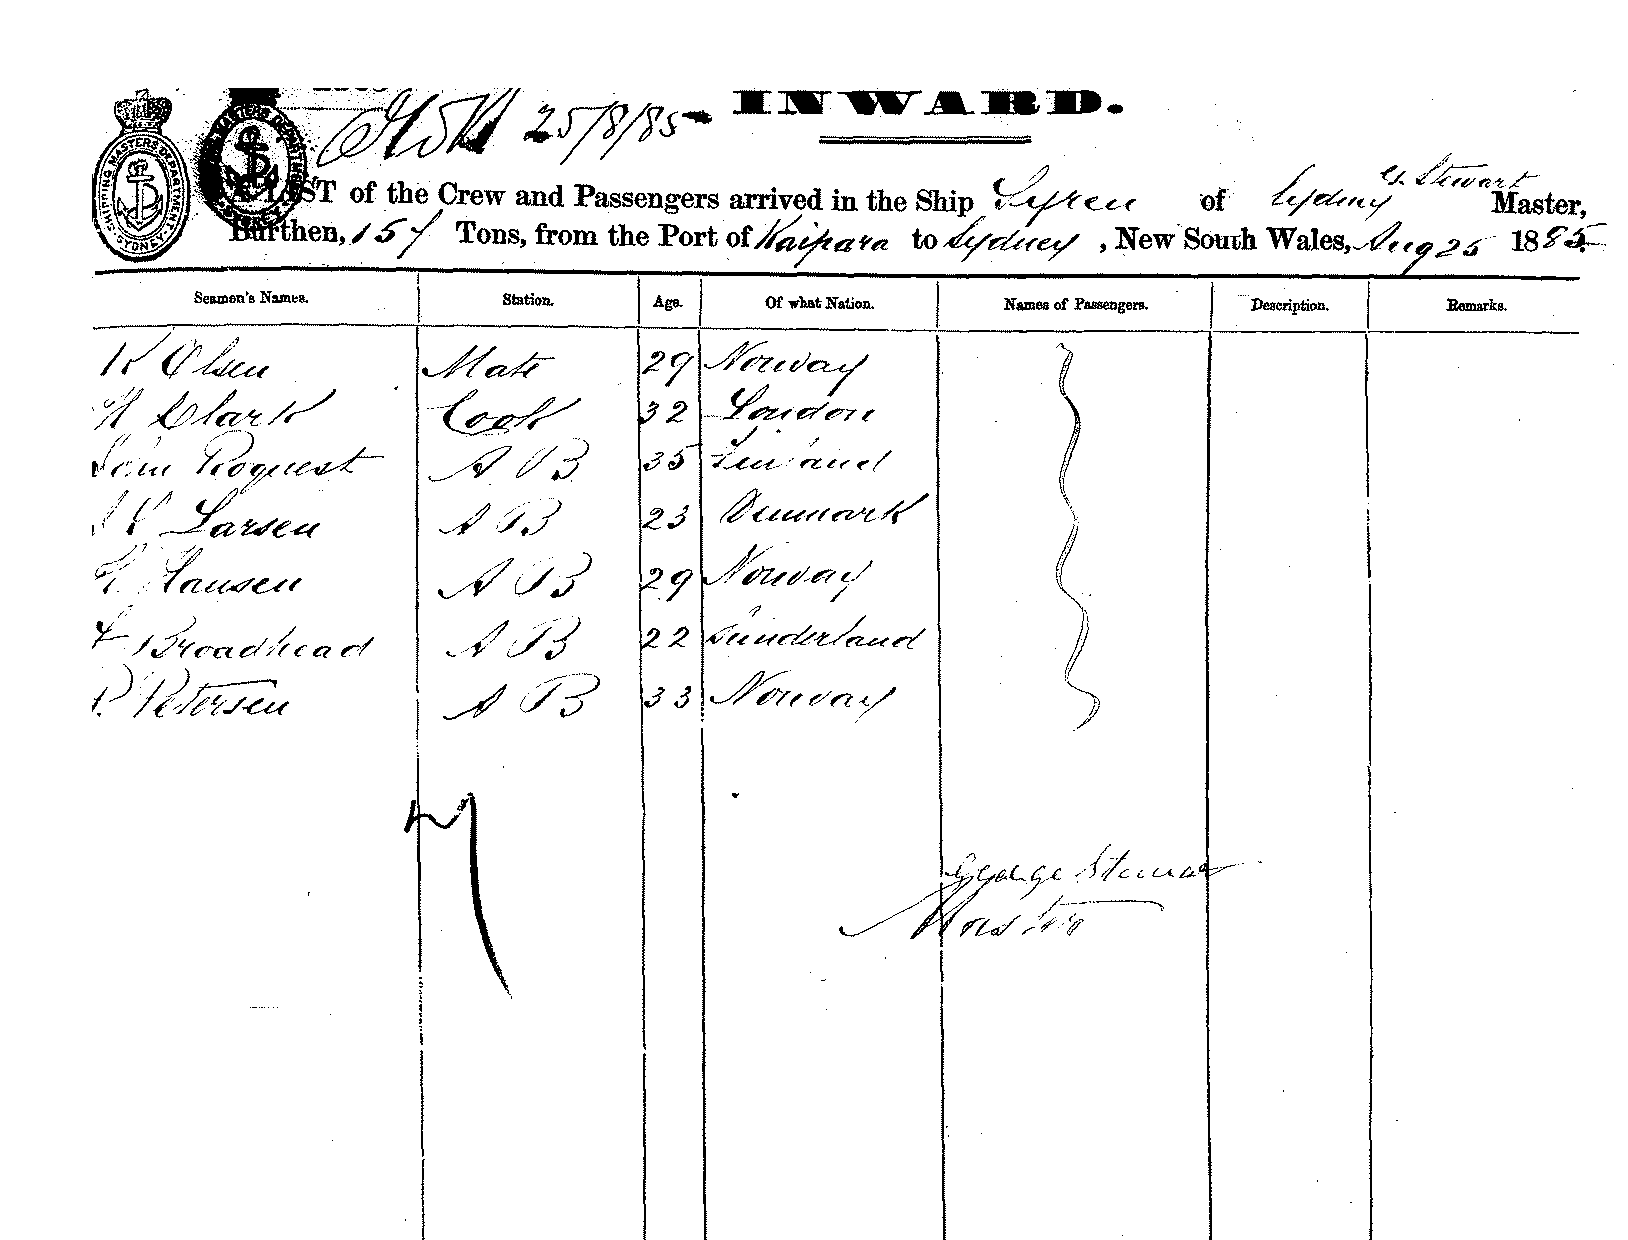 INWARD.
25/8/85
SHIPPING MASTERS DEPARTMENT SYDNEY
G. Stewart
LIST of the Crew and Passengers arrived in the Ship Syren of Sydney Master,
Burthen, 157 Tons, from the Port of Kaipara to Sydney, New South Wales, Aug 25 1885
Seamen's Names. Station. Age. Of what Nation. Names of Passengers. Description. Remarks.
K Olsen Mate 29 Norway
H Clark Cook 32 London
Roquest A B 35 Finland
Larsen A B 23 Denmark
Hansen A B 29 Norway
Broadhead A B 22 Sunderland
P. Petersen A B 33 Norway
7
George Stewart
Master